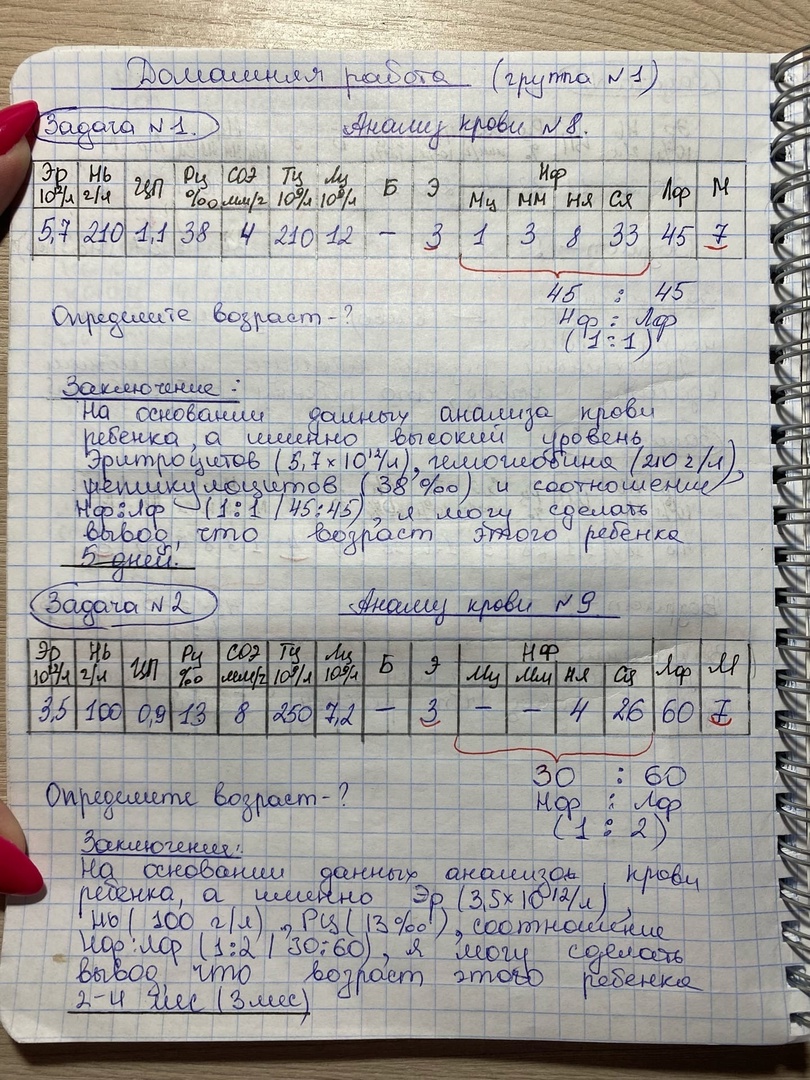 Домашняя работа (группа N1)
Задача N1. Анализ крови N8.
Эр 10¹²/л Нь г/л ЦП Рц ‰ СОЭ мм/г Тц 10⁹/л Лц 10⁹/л Б Э Нф Мц Мм Ня Ся Лф М
5,7 210 1,1 38 4 210 12 – 3 1 3 8 33 45 7
45 : 45
Определите возраст-? Нф : Лф
(1:1)
Заключение:
На основании данных анализа крови
ребенка, а именно высокий уровень
Эритроцитов (5,7×10¹²/л), гемоглобина (210 г/л),
ретикулоцитов (38‰) и соотношении
Нф:Лф (1:1 / 45:45), я могу сделать
вывод, что возраст этого ребенка
5 дней.
Задача N2 Анализ крови N9
Эр 10¹²/л Нь г/л ЦП Рц ‰ СОЭ мм/г Тц 10⁹/л Лц 10⁹/л Б Э НФ Мц Мм Ня Ся Лф М
3,5 100 0,9 13 8 250 7,2 – 3 – – 4 26 60 7
30 : 60
Определите возраст-? Нф : Лф
(1:2)
Заключение:
На основании данных анализов крови
ребенка, а именно Эр (3,5×10¹²/л),
Нь (100 г/л), Рц (13‰), соотношение
Нф:Лф (1:2 / 30:60), я могу сделать
вывод, что возраст этого ребенка
2-4 мес (3 мес)